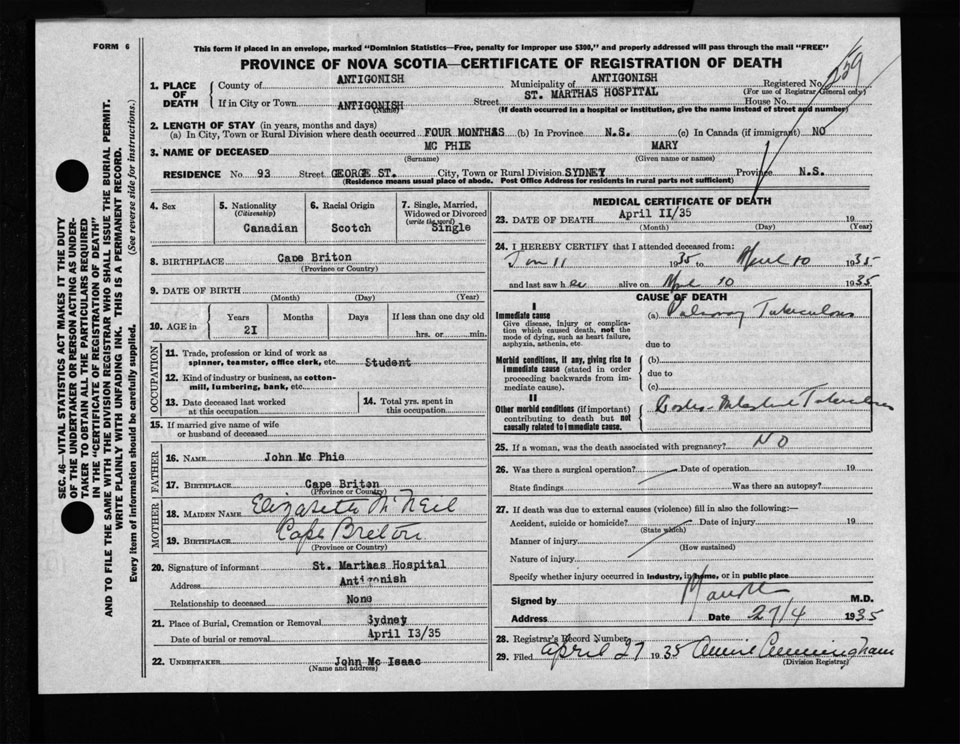 FORM 6
This form if placed in an envelope, marked "Dominion Statistics—Free, penalty for improper use $300," and properly addressed will pass through the mail "FREE"
PROVINCE OF NOVA SCOTIA—CERTIFICATE OF REGISTRATION OF DEATH
1. PLACE OF DEATH
County of ANTIGONISH Municipality of ANTIGONISH Registered No.
(For use of Registrar General only)
If in City or Town ANTIGONISH Street ST. MARTHAS HOSPITAL House No.
(Name) (If death occurred in a hospital or institution, give the name instead of street and number)
2. LENGTH OF STAY (in years, months and days)
(a) In City, Town or Rural Division where death occurred FOUR MONTHAS (b) In Province N.S. (c) In Canada (if immigrant) NO
3. NAME OF DECEASED MC PHIE MARY
(Surname) (Given name or names)
RESIDENCE No. 93 Street GEORGE ST. City, Town or Rural Division SYDNEY Province N.S.
(Residence means usual place of abode. Post Office Address for residents in rural parts not sufficient)
4. Sex
5. Nationality
(Citizenship)
Canadian
6. Racial Origin
Scotch
7. Single, Married, Widowed or Divorced
(write the word)
Single
8. BIRTHPLACE Cape Briton
(Province or Country)
9. DATE OF BIRTH
(Month) (Day) (Year)
10. AGE in
Years Months Days If less than one day old
2I hrs. or min.
OCCUPATION
11. Trade, profession or kind of work as
spinner, teamster, office clerk, etc. Student
12. Kind of industry or business, as cotton-
mill, lumbering, bank, etc.
13. Date deceased last worked
at this occupation
14. Total yrs. spent in
this occupation
15. If married give name of wife
or husband of deceased
FATHER
16. NAME John Mc Phie
17. BIRTHPLACE Cape Briton
(Province or Country)
MOTHER
18. MAIDEN NAME Elizabeth McNeil
19. BIRTHPLACE Cape Breton
(Province or Country)
20. Signature of informant St. Marthas Hospital
Address Antigonish
Relationship to deceased None
21. Place of Burial, Cremation or Removal Sydney
Date of burial or removal April I3/35
22. UNDERTAKER John Mc Isaac
(Name and address)
MEDICAL CERTIFICATE OF DEATH
23. DATE OF DEATH April II/35 19
(Month) (Day) (Year)
24. I HEREBY CERTIFY that I attended deceased from:
Jan 11 1935 to April 10 1935
and last saw her alive on April 10 1935
CAUSE OF DEATH
I
Immediate cause
Give disease, injury or complica-
tion which caused death, not the
mode of dying, such as heart failure,
asphyxia, asthenia, etc.
(a) Pulmonary Tuberculosis
due to
Morbid conditions, if any, giving rise to
immediate cause (stated in order
proceeding backwards from im-
mediate cause).
(b)
due to
(c)
II
Other morbid conditions (if important)
contributing to death but not
causally related to immediate cause.
Tuberculosis
25. If a woman, was the death associated with pregnancy? NO
26. Was there a surgical operation? Date of operation 19
State findings Was there an autopsy?
27. If death was due to external causes (violence) fill in also the following:—
Accident, suicide or homicide? Date of injury 19
(State which)
Manner of injury
(How sustained)
Nature of injury
Specify whether injury occurred in industry, in home, or in public place
Signed by M.D.
Address Date 27/4 1935
28. Registrar's Record Number
29. Filed April 27 1935 Cunningham
(Division Registrar)
SEC. 46—VITAL STATISTICS ACT MAKES IT THE DUTY
OF THE UNDERTAKER OR PERSON ACTING AS UNDER-
TAKER TO OBTAIN ALL THE PARTICULARS REQUIRED
IN THE "CERTIFICATE OF REGISTRATION OF DEATH"
AND TO FILE THE SAME WITH THE DIVISION REGISTRAR WHO SHALL ISSUE THE BURIAL PERMIT.
WRITE PLAINLY WITH UNFADING INK. THIS IS A PERMANENT RECORD.
Every item of information should be carefully supplied. (See reverse side for instructions.)